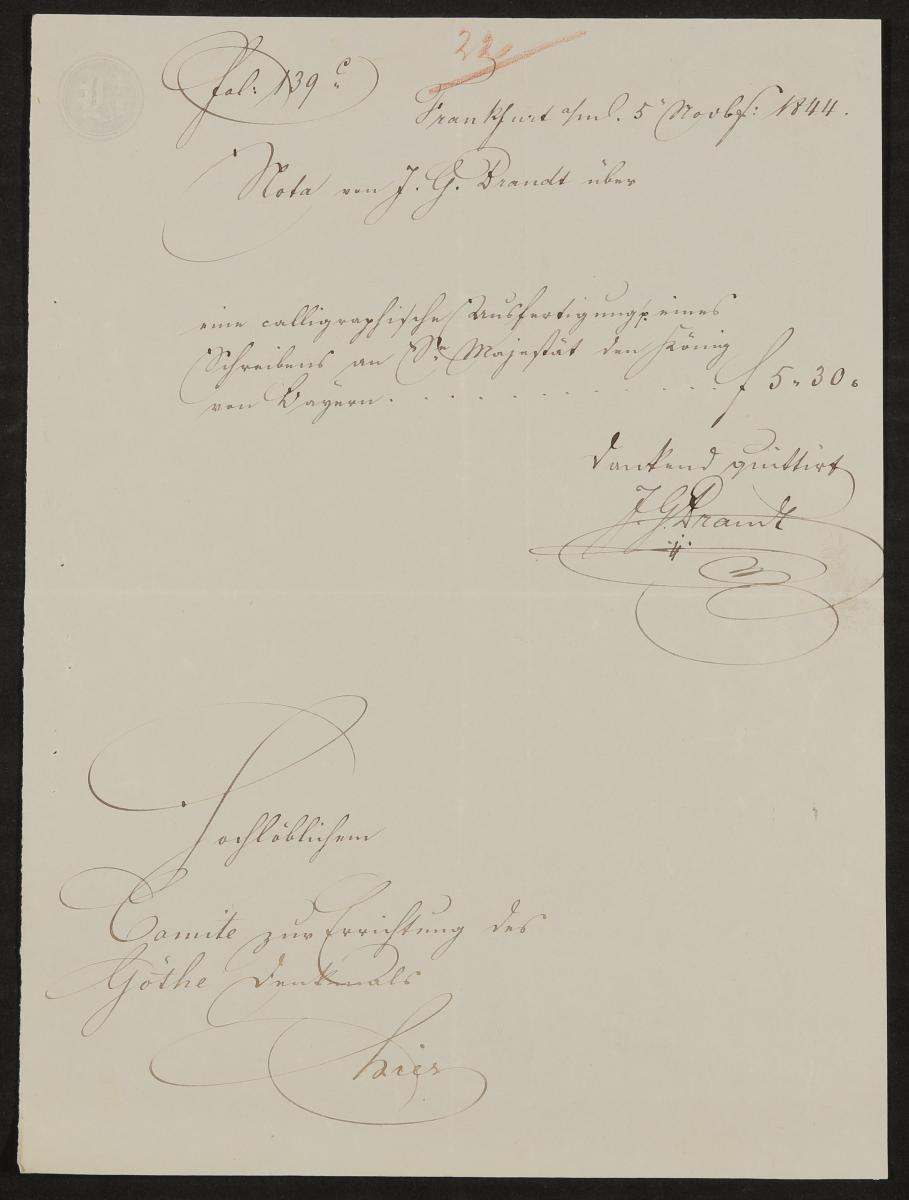 22
fol: 139 c
Frankfurt a/m. 5 Novbr: 1844.
Nota von J. G. Brandt über
eine calligraphische Ausfertigung eines
Schreibens an Se Majestät den König
von Bayern . . . . . . . . . . . . . f 5 " 30 "
dankend quittirt
J. G. Brandt
Hochlöblichem
Comite zur Errichtung des
Göthe Denkmals
hier